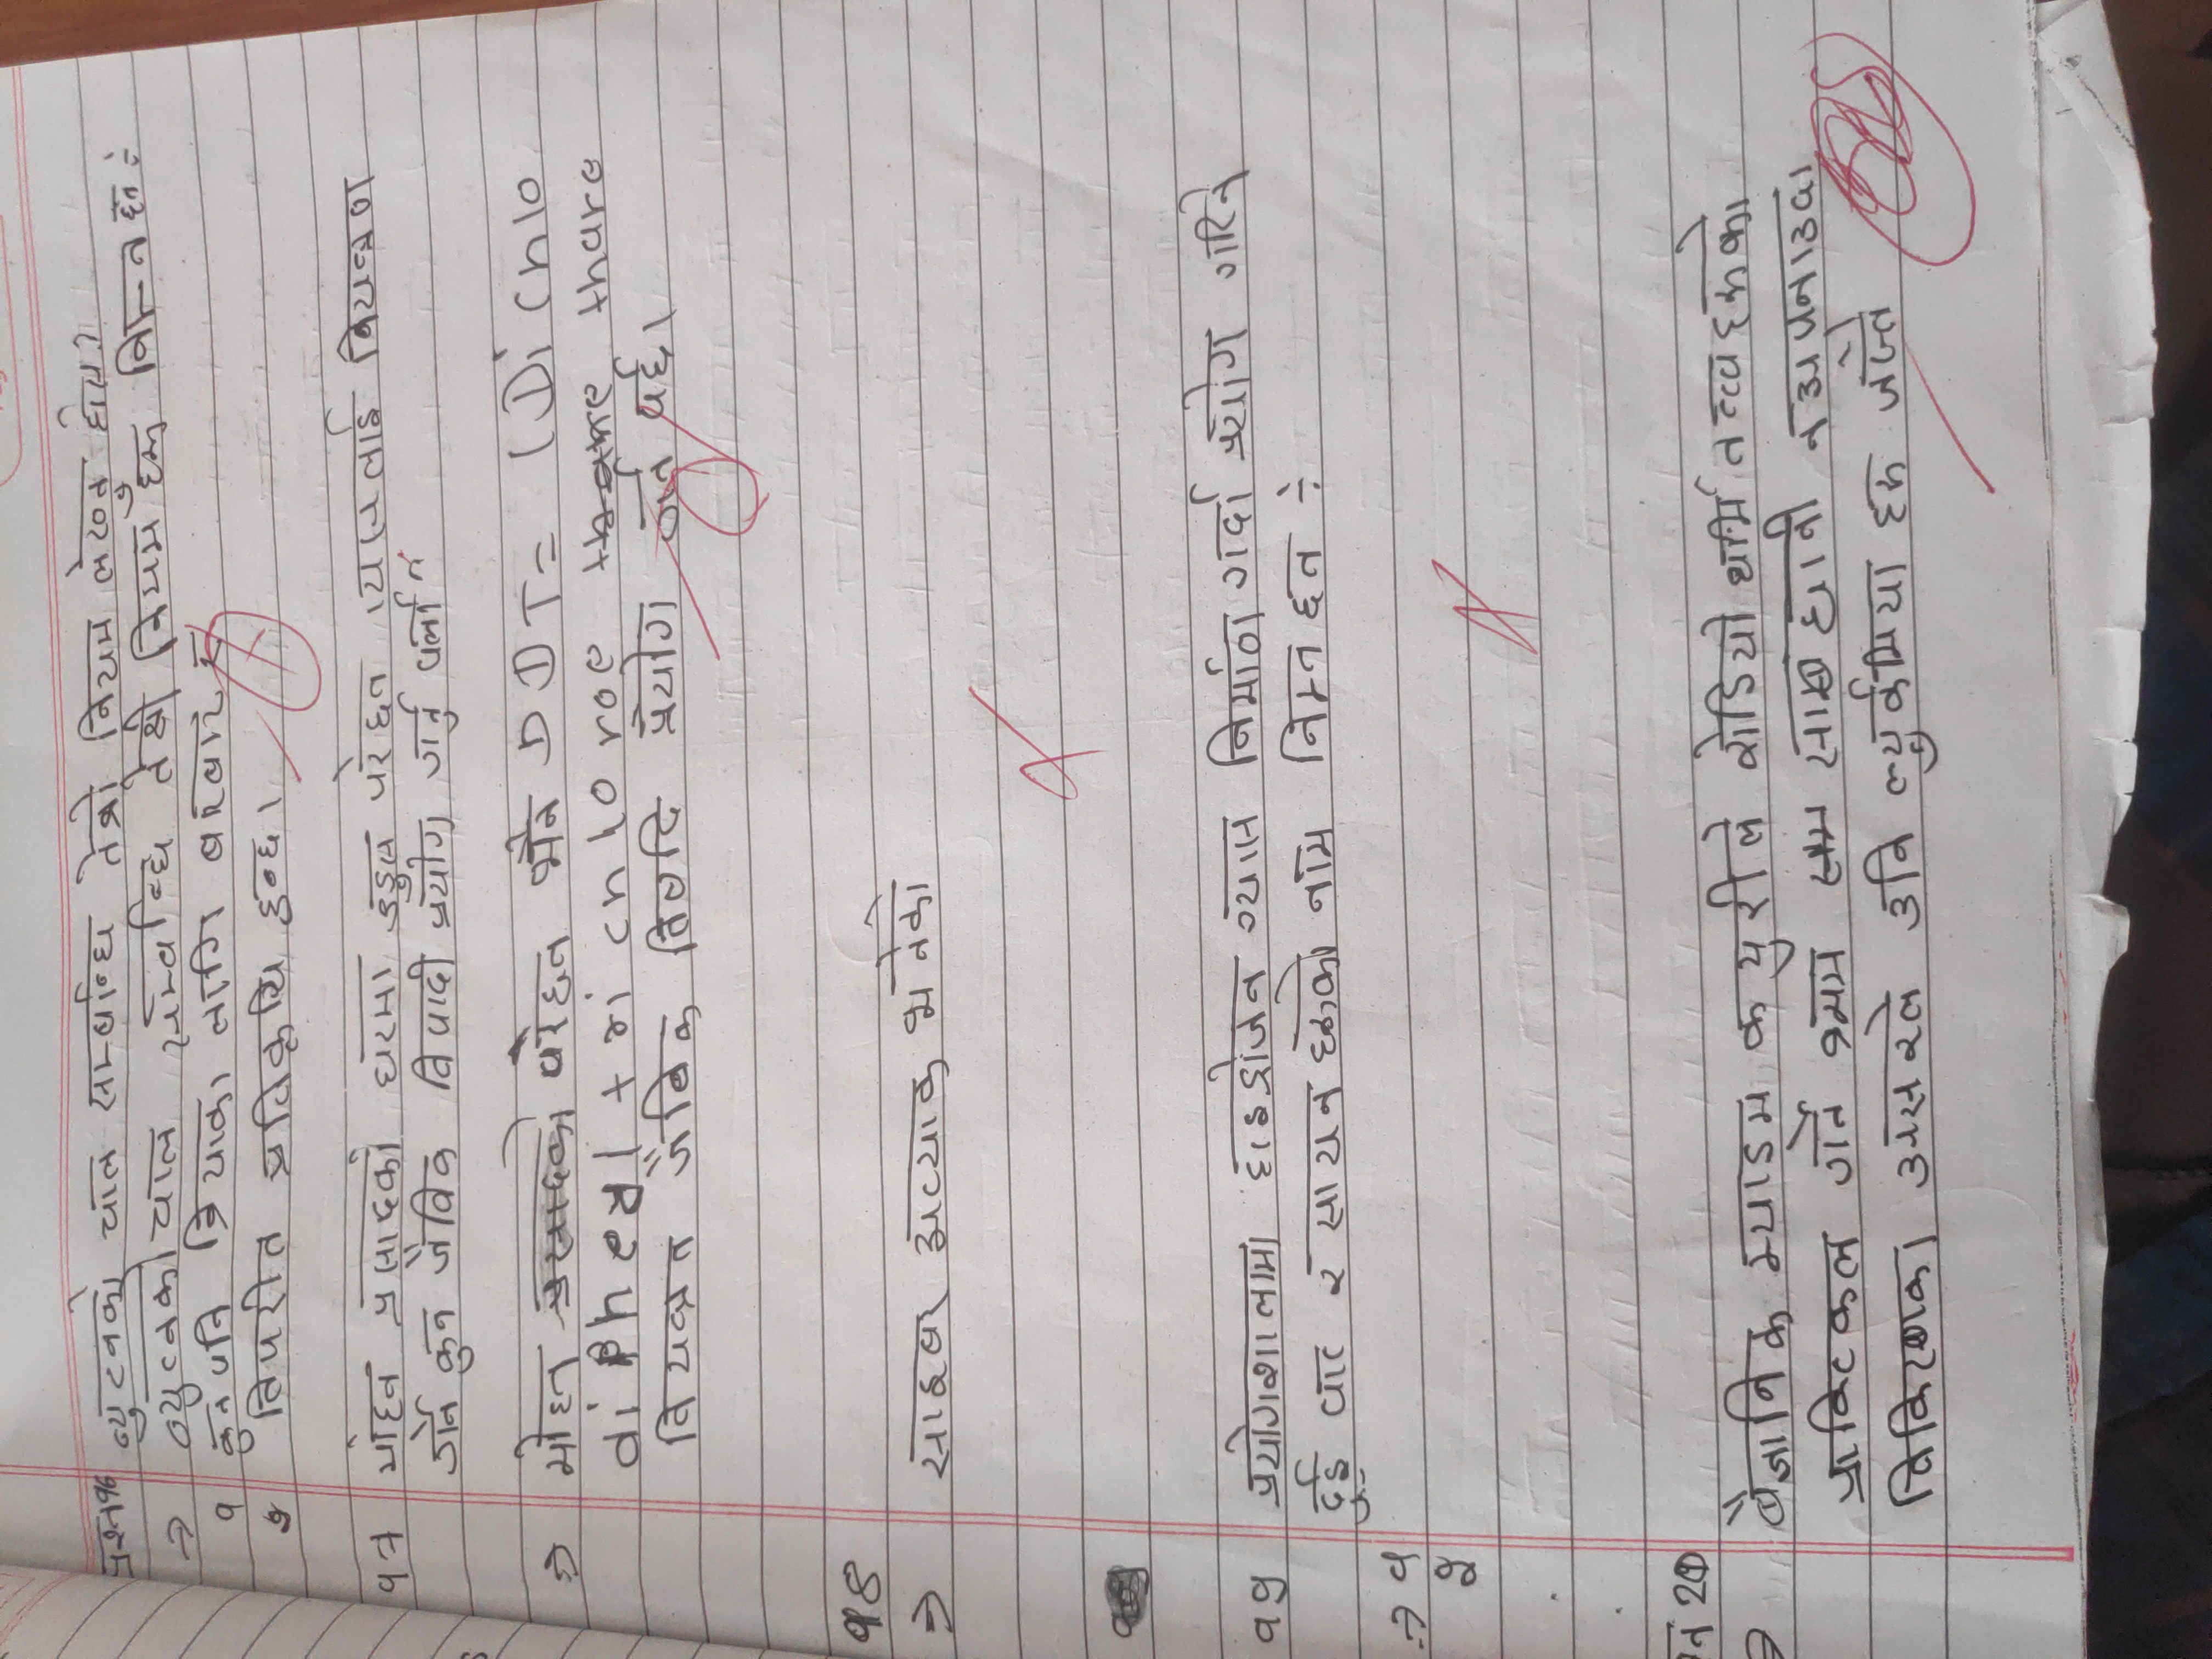 प्रश्न१६ न्युटनको चाल सम्बन्धि तेश्रो नियम लेख्नु होस?
→ न्युटनको चाल सम्बन्धि तेश्रो नियम हरू निम्न छन ÷
१ कुन पनि क्रियाका लागि बरबार र
विपरीत प्रतिकृया हुन्छ।
१७ मोहन प्रसादको घरमा उडुस परेछन । यसलाई नियन्त्रण
गर्न कुन जैविक विषादी प्रयोग गर्नु पर्ला
⇒ मोहन प्रसादको परेछन भने DDT = (Di Chlo
di Pheyl + ri chloroe thare thare
नियन्त्रन जैबिक विषादि प्रयोग गर्न पर्छ।
१४
⇒ साइबर अट्याक भनेको
१९ प्रयोगशालामा हाइड्रोजन ग्यास निर्माण गर्दा प्रयोग गरिने
दुई वटा रसायन हरुको नाम निम्न छन ÷
→ १
२
न 20
बैज्ञानिक म्याडम क्युरीले रोडियो धर्मि तत्त्व हरूको
प्राक्टिकल गर्ने भ्रमम साबधानी न अपनाउदा
विकिरणका असरले उनि ल्युकेमिया हरु जस्तै